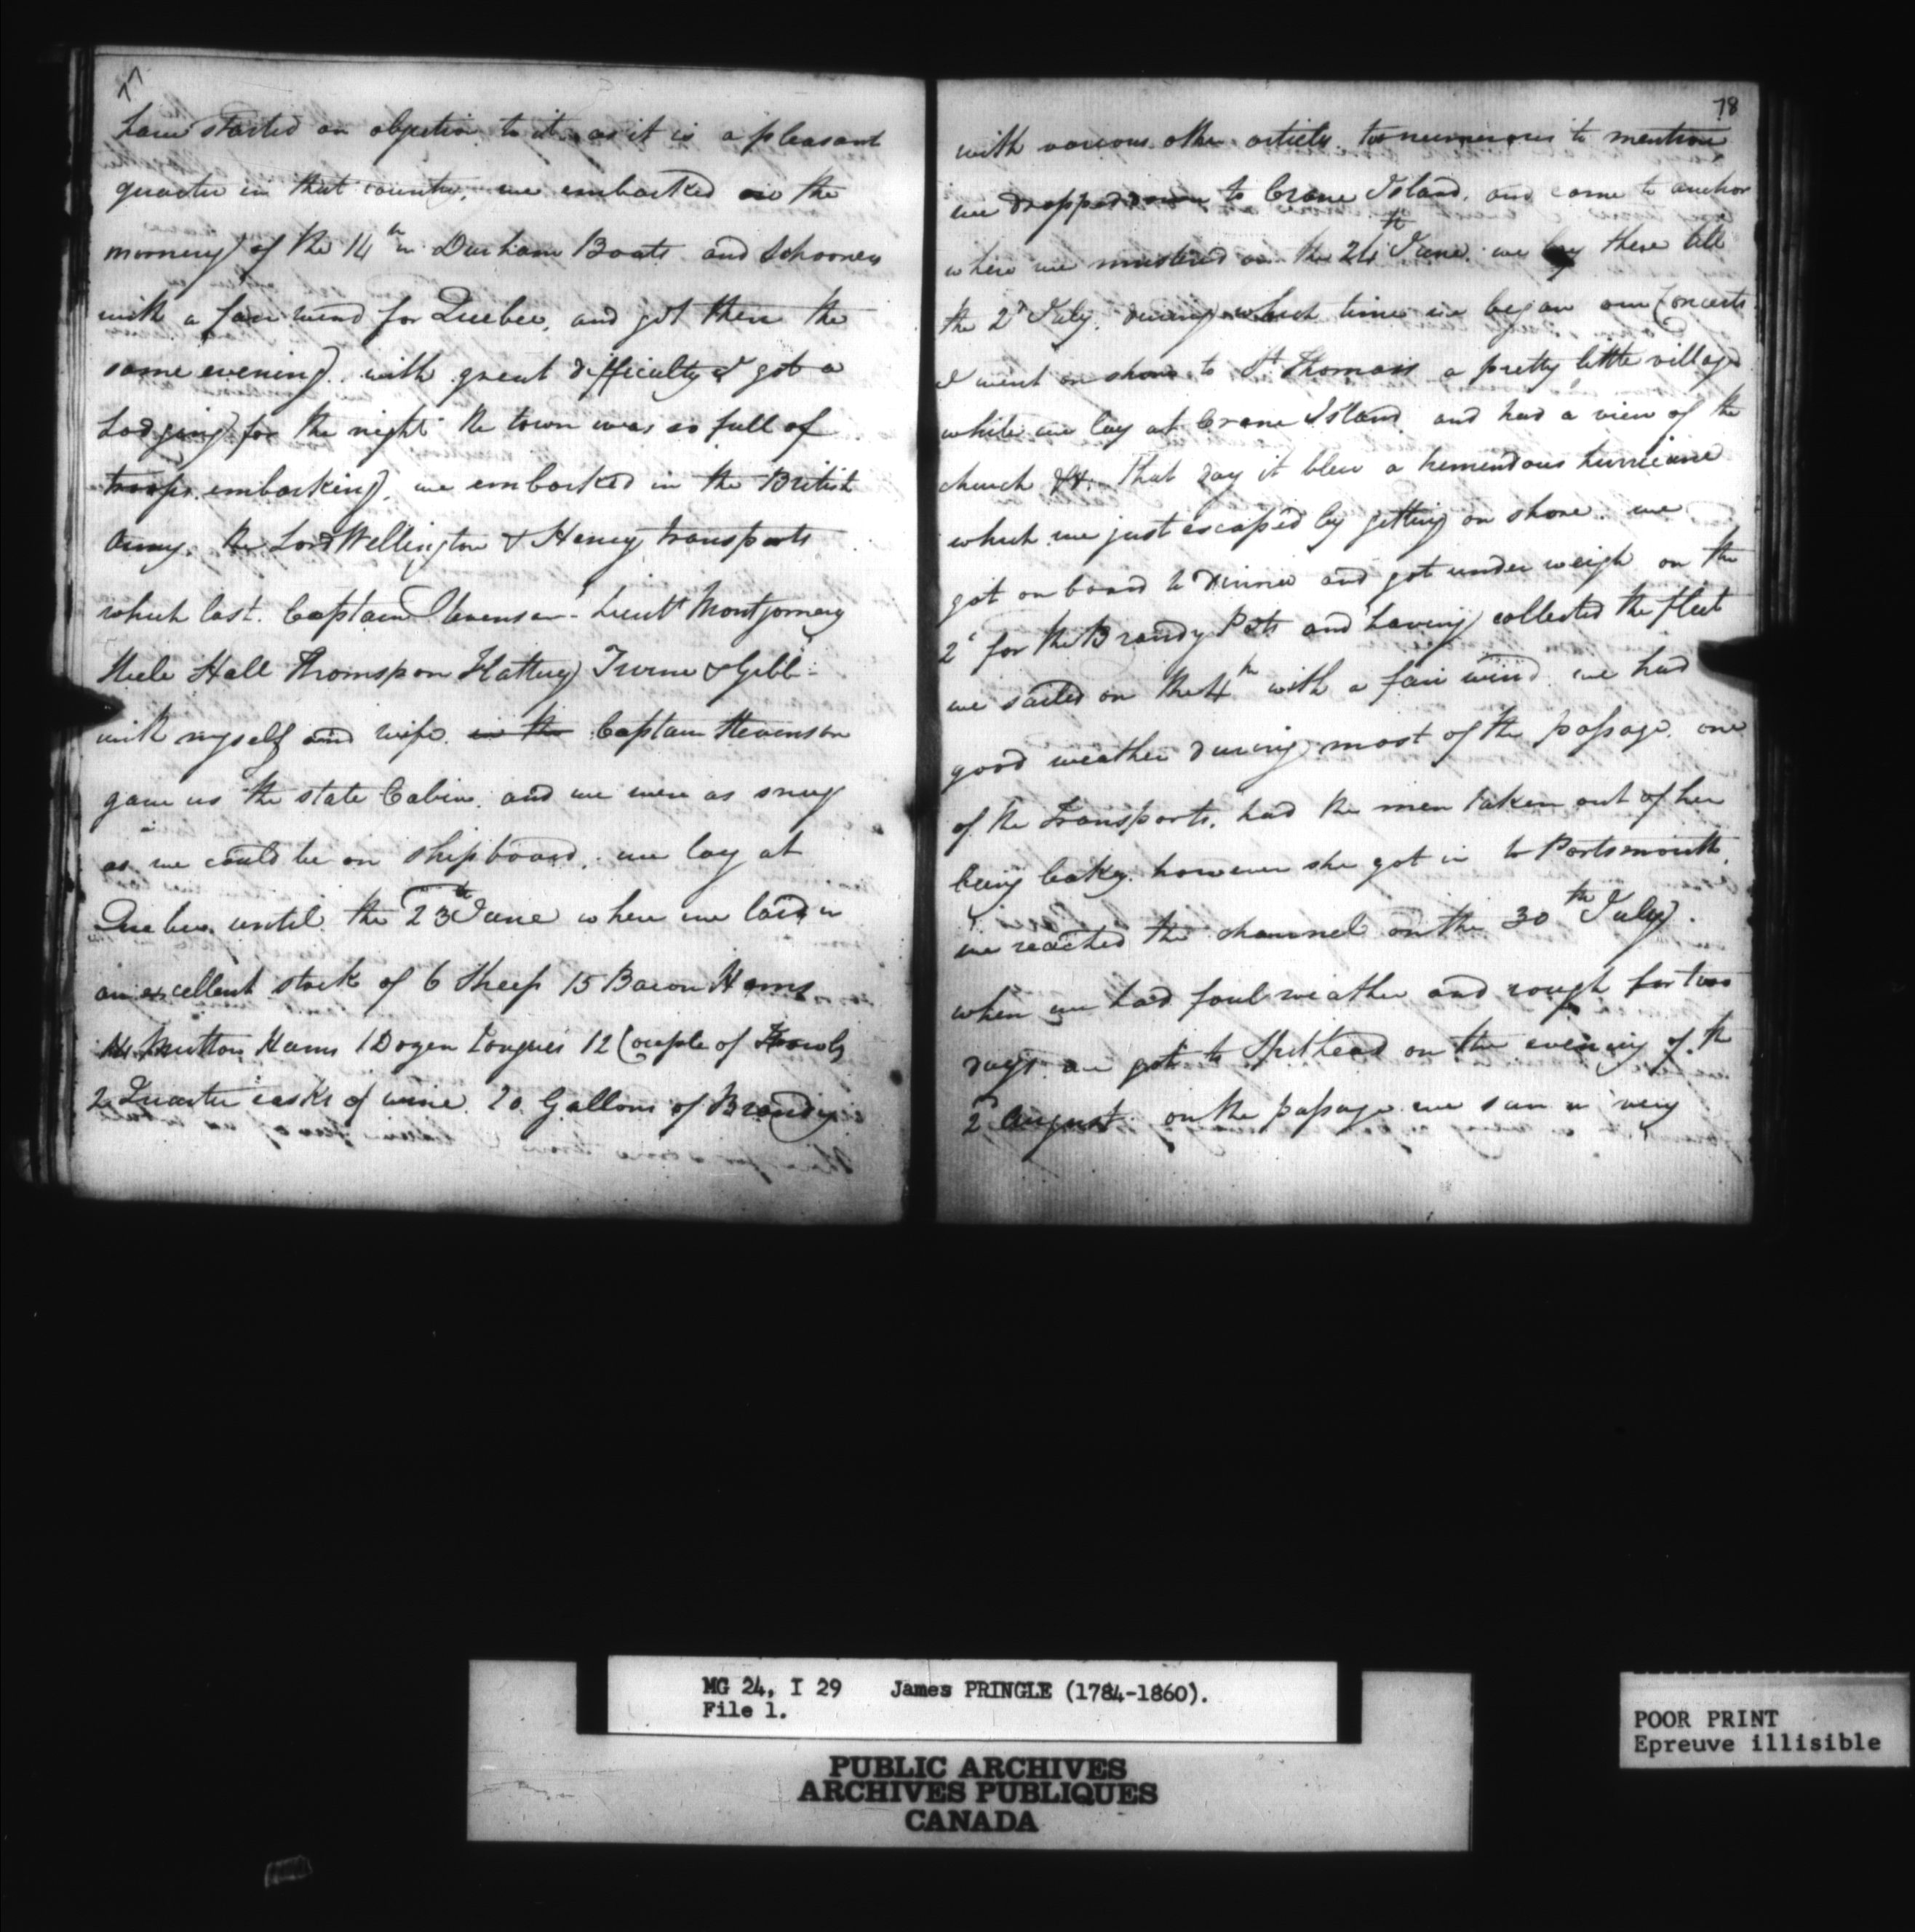 77
have started an objection to it as it is a pleasant
quarter in that country. we embarked on the
morning of the 14th in Durham Boats and Schooners
with a fair wind for Quebec, and got there the
same evening. with great difficulty I got a
Lodging for the night the town was so full of
troops embarking. we embarked in the British
Army. the Lord Wellington & Henry transports
which last. Captain Stevenson - Lieutt Montgomery
Steele Hall Thompson Flattery Irvine & Gibb -
with myself and wife. in the Captain Stevenson
gave us the state Cabin. and we were as snug
as we could be on shipboard. we lay at
Quebec until the 23th June where we laid in
an excellent stock of 6 Sheep 15 Bacon Hams
14 Mutton Hams 1 Dozen Tongues 12 Couple of Fowls
2 Quarter casks of wine 20 Gallons of Brandy
78
with various other articles too numerous to mention,
we dropped down to Crane Island, and came to anchor
where we mustered on the 24th June. we lay there till
the 2d July. during which time we began our Concerts.
I went on shore to St Thomass a pretty little village
while we lay at Crane Island. and had a view of the
church &c. That day it blew a tremendous hurricane
which we just escaped by getting on shore. we
got on board to Dinner and got under weigh on the
2d for the Brandy Pots and having collected the fleet
we sailed on the 4th with a fair wind. we had
good weather during most of the passage. one
of the Transports. had the men taken out of her
being leaky. however she got in to Portsmouth.
we reached the channel on the 30th July.
when we had foul weather and rough for two
days. we got to Spithead on the evening of the
2d August. on the passage we saw a very
MG 24, I 29 James PRINGLE (1784-1860).
File 1.
PUBLIC ARCHIVES
ARCHIVES PUBLIQUES
CANADA
POOR PRINT
Epreuve illisible